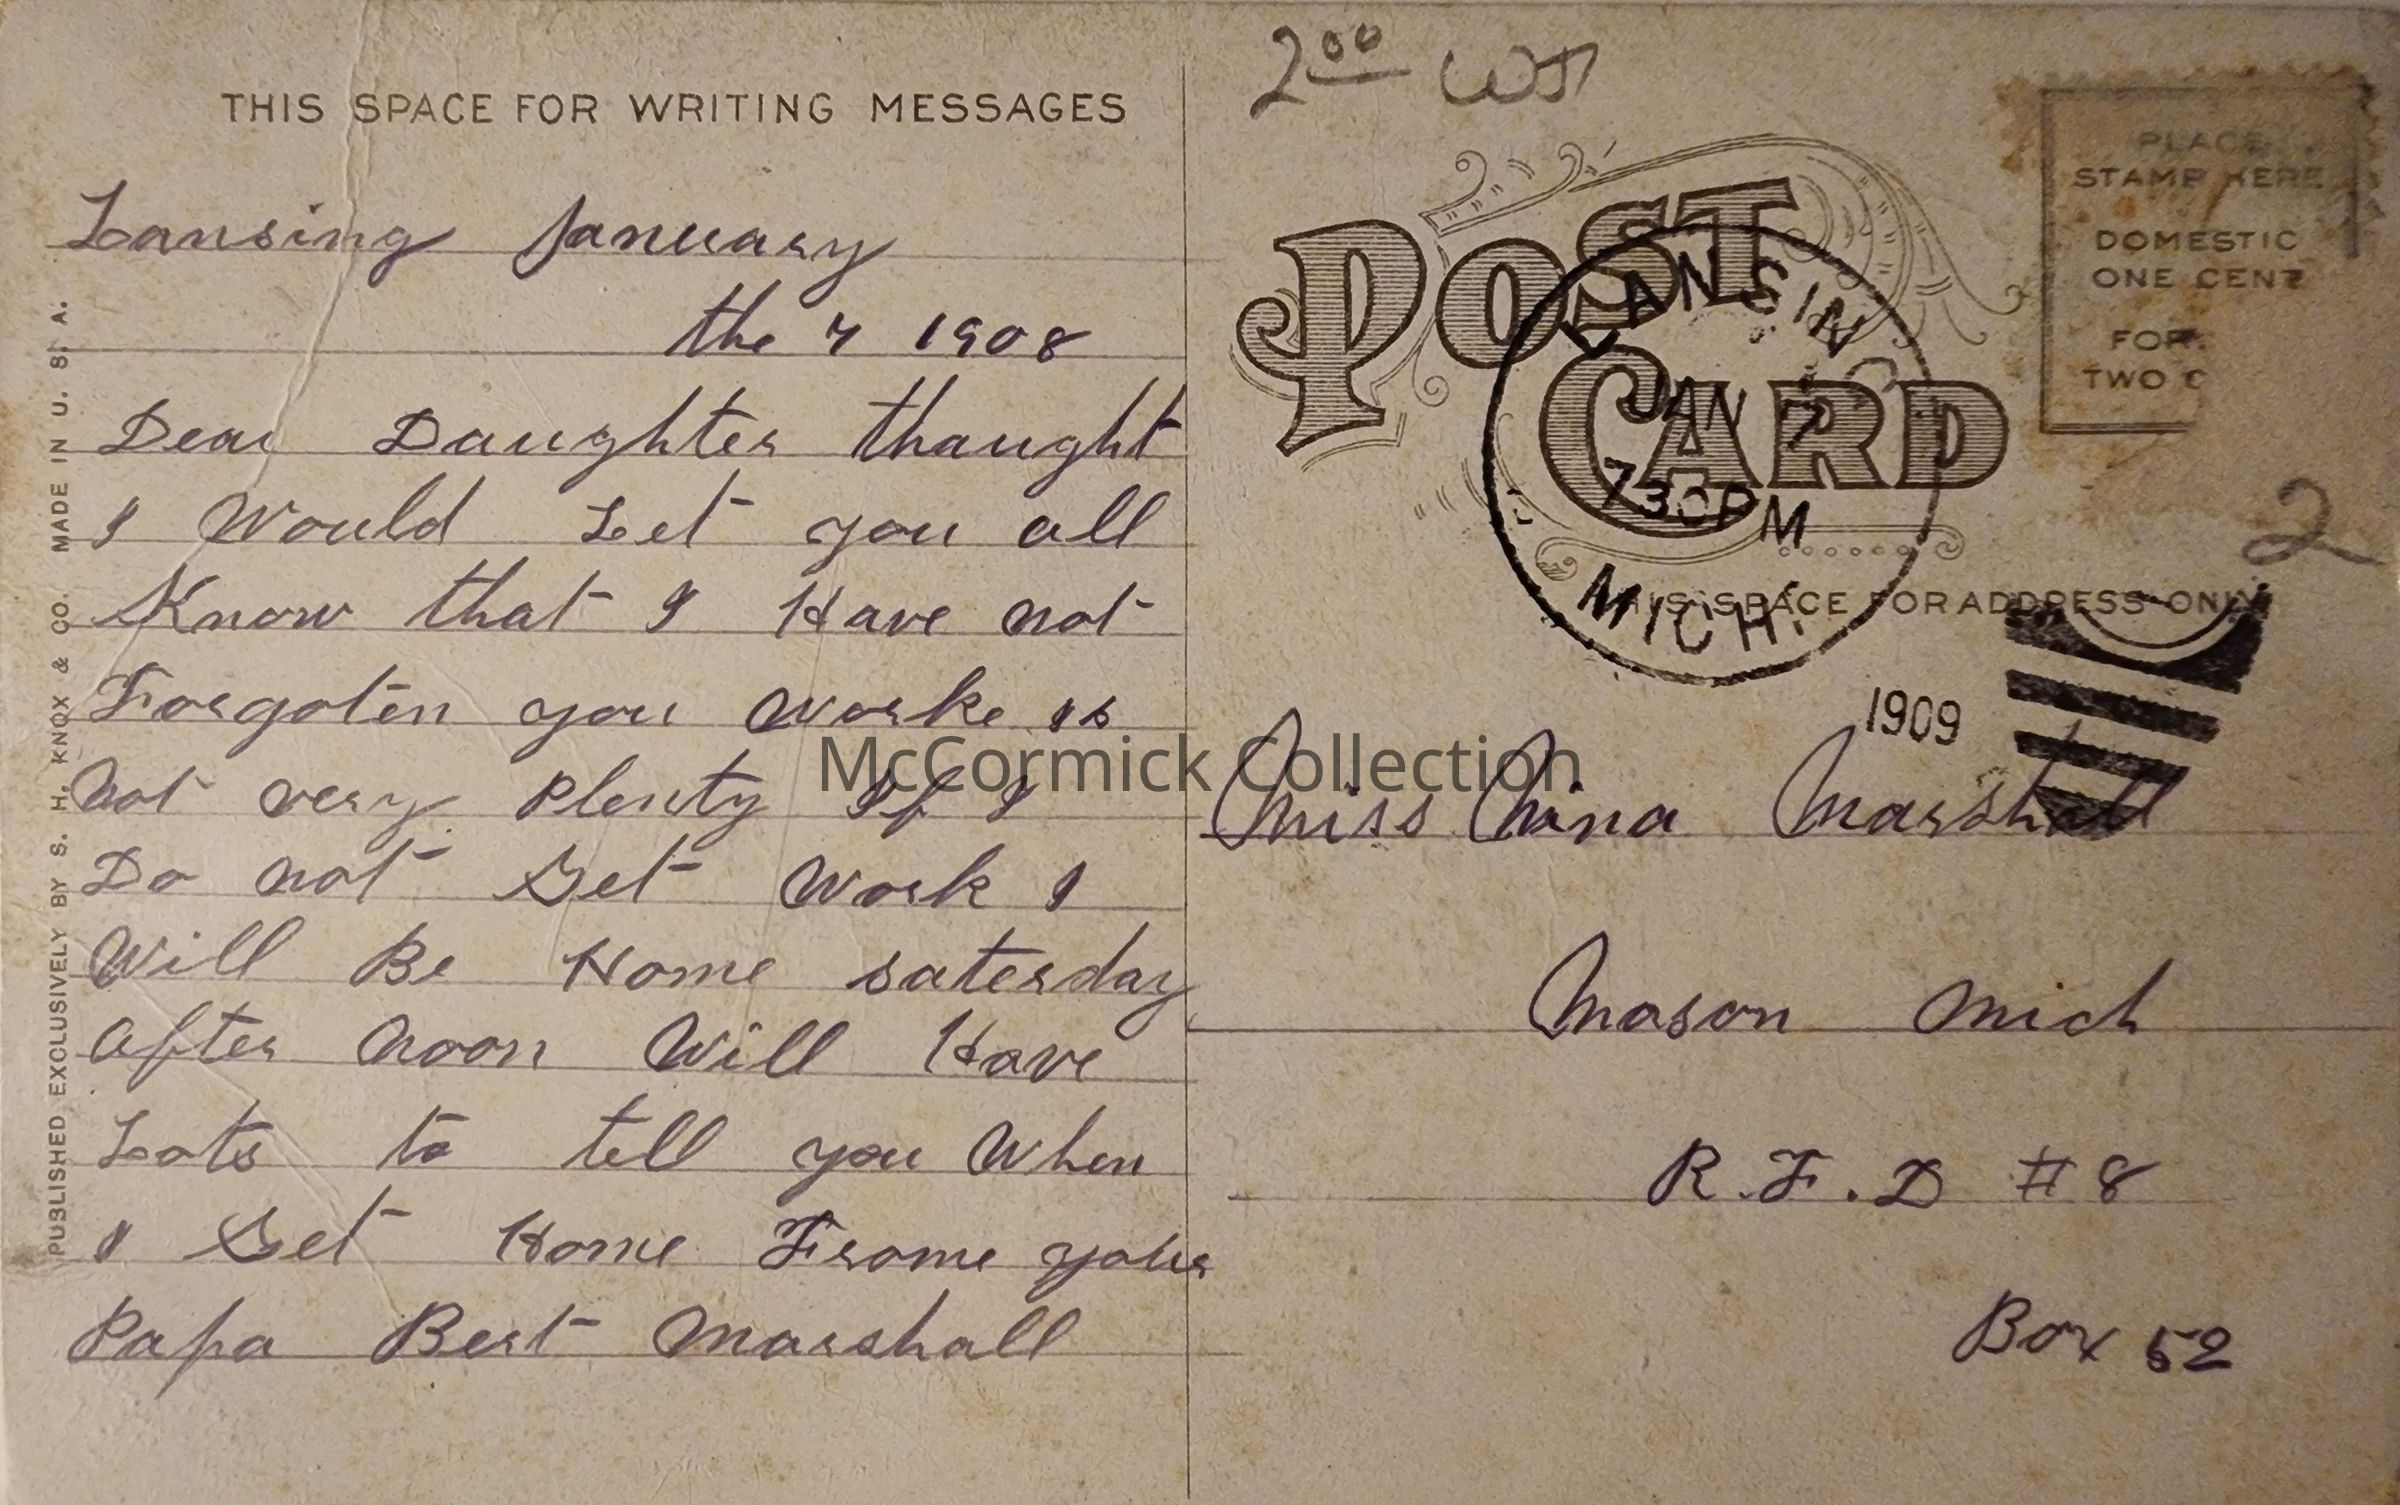 THIS SPACE FOR WRITING MESSAGES
Lansing January
the 7 1908
Dear Daughter thaught
I Would Let you all
Know that I Have not
Forgoten you Worke is
Not very Plenty If I
Do not Get Work I
Will Be Home saterday
After Noon Will Have
Lots to tell you When
I Get Home Frome your
Papa Bert Marshall
PUBLISHED EXCLUSIVELY BY S. H. KNOX & CO. MADE IN U. S. A.
2 00
POST CARD
PLACE
STAMP HERE
DOMESTIC
ONE CENT
FOR
TWO C
LANSING
JAN 7
730PM
MICH.
1909
2
THIS SPACE FOR ADDRESS ONLY
Miss Nina Marshall
Mason Mich
R.F.D #8
Box 52
McCormick Collection